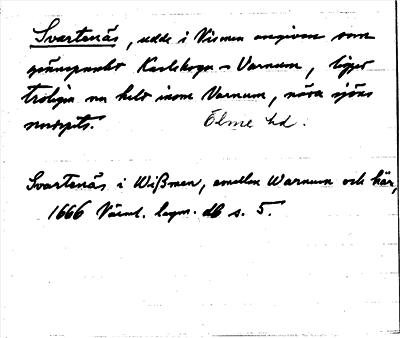 Svartenäs, udde i Vismen angiven som
gränspunkt Karlskoga - Varnum, ligger
troligen nu helt inom Varnum, nära sjöns
nordspets. Ölme hd.
Svartenäs i Wißmen, emellan Warnum och här,
1666 Värml. lagm. db s. 5.